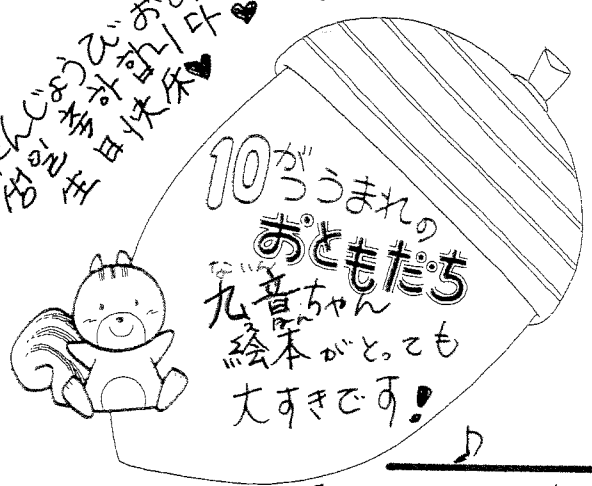 たんじょうびお
생일 축하합니다♥
生日快乐♥
10がつうまれの
おともだち
九音ちゃん
ないん
絵本がとっても
えほん
大すきです!